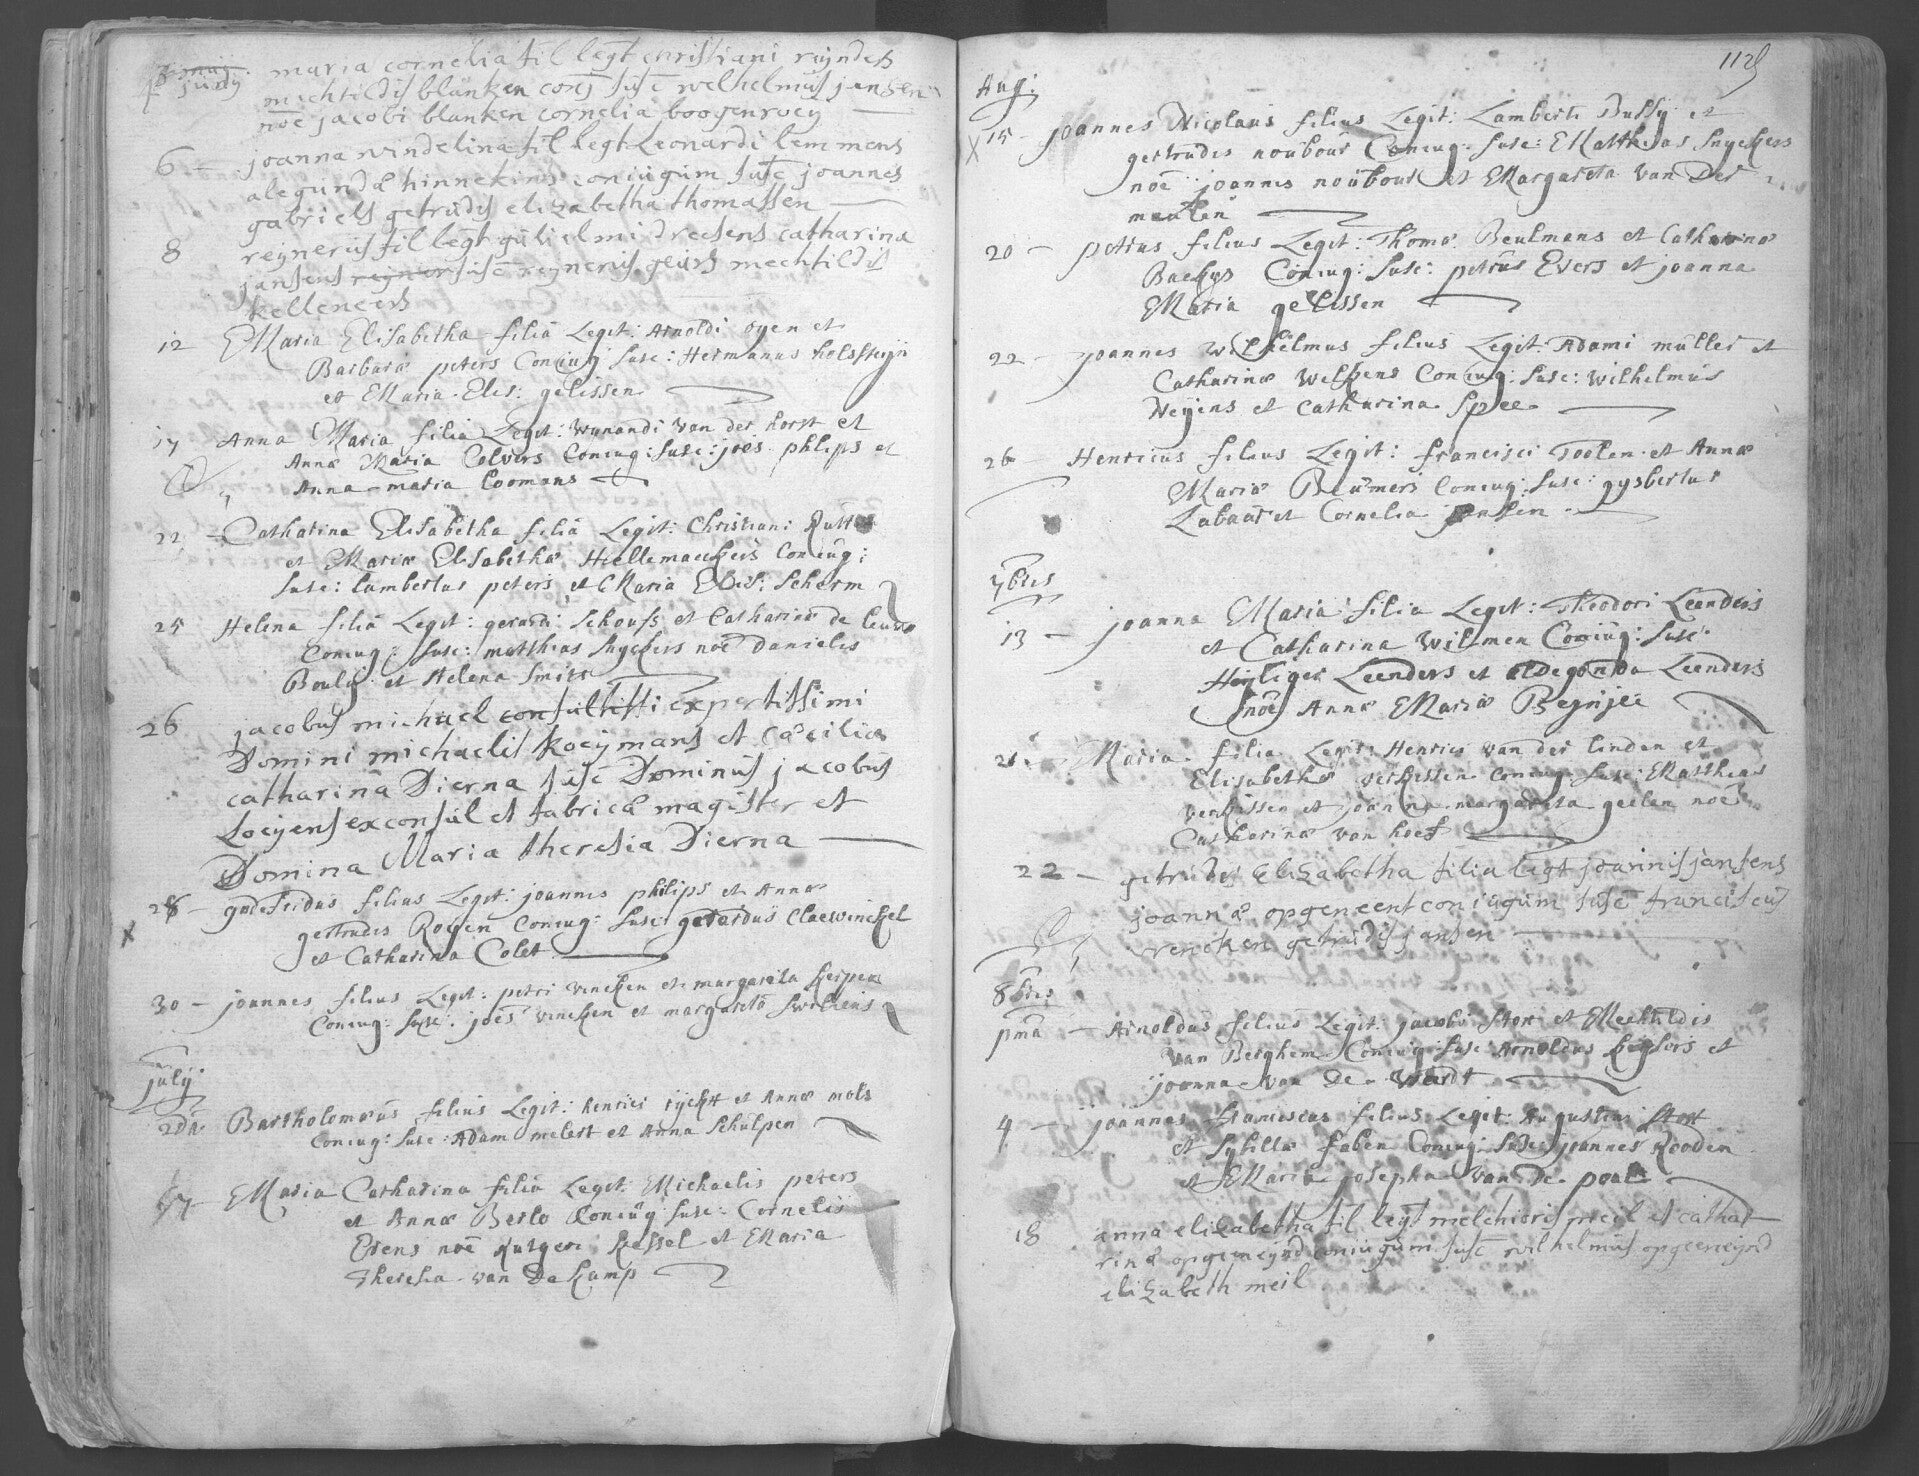 juny maria cornelia fil legt christiani reynders
mechtildis blanken conj susc welhelmus jansen
noe jacobi blanken cornelia boogenroey
6 - joanna windelina fil legt Leonardi lemmens
alegundæ hinnekins coniugum susc joannes
gabriels getrudis elizabetha thomassen
8 reynerus fil legt gulielmi dresens catharinæ
jansens susc reynerus geurs mechtildis
kelleneers
12 Maria Elisabetha filia Legit: Arnoldi oyen et
Barbaræ peters Coniug: susc: Hermanus holssteyn
et Maria Elis: gelissen
17 Anna Maria filia Legit: wynandi van der horst et
Annæ Maria Colvers Coniug: susc: joēs phlips et
Anna maria Coomans
22 - Catharina Elisabetha filia Legit: Christiani Rutten
et Mariæ Elisabethæ Hellemaeckers Coniug:
susc: Lambertus peters et Maria Elis: Scherm
25 Helena filia Legit: gerardi Schoufs et Catharinæ de leuw
Coniug: susc: matthias Snyckers noē Danielis
Bouly et Helena Smitz
26 jacobus michael consultissi expertissimi
Domini michaelis Koeymans et Cæcilia
catharina Dierna susc Dominus jacobus
Loeyens exconsul et fabricæ magister et
Domina Maria theresia Dierna
28 - godefridus filius Legit: joannis philips et Annæ
x gertrudis Royen Coniug: susc: gerardus Claewinckel
et Catharina Colet
30 - joannes filius Legit: petri vincken et margareta kerpen
Coniug: susc: joēs vincken et margareta
july
2da Bartholomæus filius Legit: henrici ryckst et Annæ mols
Coniug: susc: Adam melert et Anna Schulpen
17 - Maria Catharina filia Legit: Michaelis peters
et Annæ Berlo Coniug: susc: Cornelis
Evens noē Rutgeri kessel et Maria
Theresia van De kamp
112
Aug:
x 15 - joannes Nicolaus filius Legit: Lamberti Bussy et
gertrudis noubour Coniug: susc: Matthias Snyckers
noē joannis noubour et Margareta van Der
meulen
20 - petrus filius Legit: Thomæ Beulmans et Catharinæ
Backys Coniug: susc: petrus Evers et joanna
Maria gelissen
22 - joannes Wilhelmus filius Legit: Adami muller et
Catharinæ Welkens Coniug: susc: wilhelmus
Neyens et Catharina Spee
26 - Henricus filius Legit: francisci Toolen et Annæ
Mariæ Beumers Coniug: susc: gysbertus
Labaar et Cornelia jansen
7bris
13 - joanna Maria filia Legit: Theodori Leenders
et Catharina wilmen Coniug: susc:
Heyliger Leenders et Aldegonda Leenders
noē Annæ Mariæ Beynjeé
21 - Maria filia Legit: Henrici van der linden et
Elisabethæ verkissen Coniug: susc: Matthias
verkissen et joanna margareta geelen noē
Catharinæ van hoef
22 - getrudis Elizabetha filia legt joannis jansens
joannæ opgeneent coniugum susc franciscus
rencken getrudis jansen
8bris
pma - Arnoldus filius Legit: jacobi Stox et Mechtildis
van Berghem Coniug: susc: Arnoldus keysers et
joanna van De weerdt
4 - joannes franciscus filius Legit: Augustini Stox
et Sybillæ faben Coniug: susc: joannes Rooden
et Maria josepha van De poel
18 anna elizabetha fil legt melchioris meil et catha-
rinæ opgeneynd coniugum susc wilhelmus opgeneynd
elizabeth meil